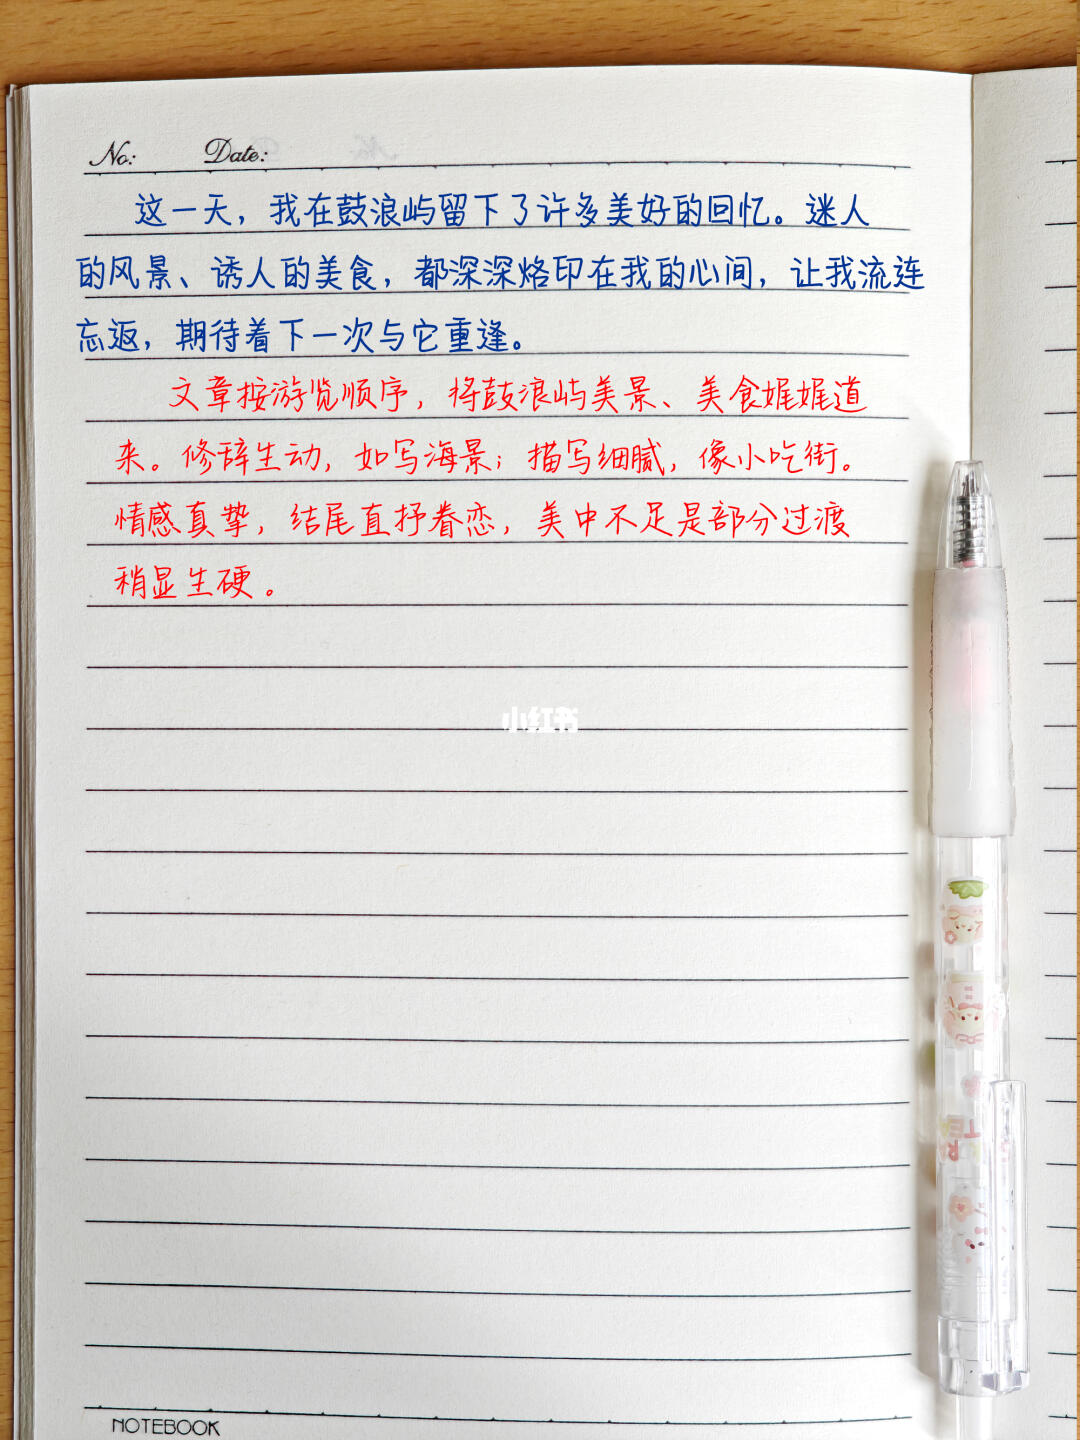 No: Date:
这一天，我在鼓浪屿留下了许多美好的回忆。迷人
的风景、诱人的美食，都深深烙印在我的心间，让我流连
忘返，期待着下一次与它重逢。
文章按游览顺序，将鼓浪屿美景、美食娓娓道
来。修辞生动，如写海景；描写细腻，像小吃街。
情感真挚，结尾直抒眷恋，美中不足是部分过渡
稍显生硬。
小红书
NOTEBOOK